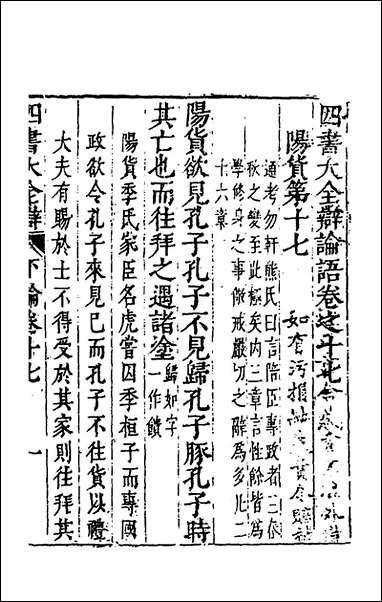 四書大全辯論語卷之十七
陽貨第十七
通考勿軒熊氏曰言陪臣專政者三春
秋之變至此極矣內三章言性餘皆爲
學修身之事儆戒嚴切之辭爲多凡二
十六章
陽貨欲見孔子孔子不見歸孔子豚孔子時
其亡也而往拜之遇諸塗
歸如字
一作饋
陽貨季氏家臣名虎嘗囚季桓子而專國
政欲令孔子來見己而孔子不往貨以禮
大夫有賜於士不得受於其家則往拜其
四書大全辯
下論卷十七
一